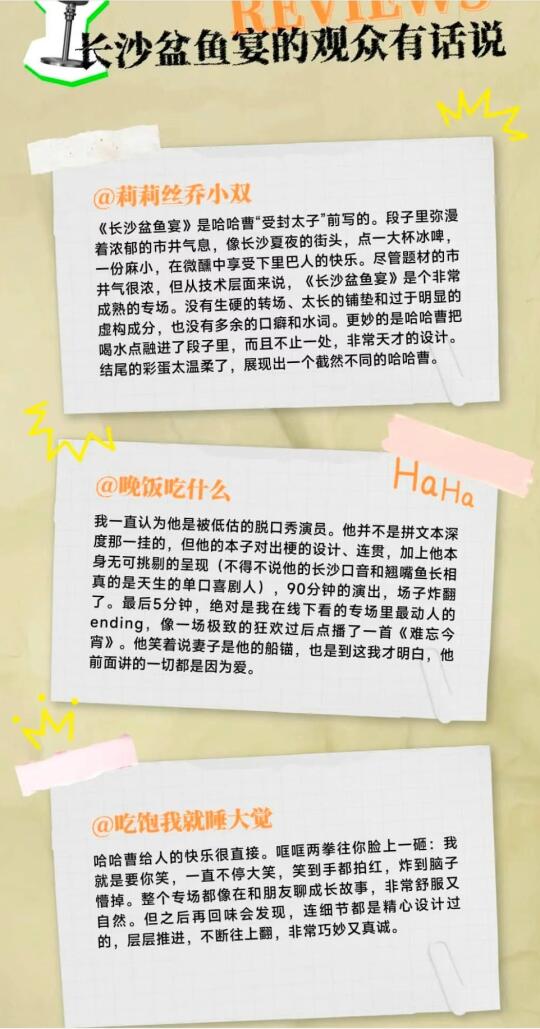 REVIEWS
长沙盆鱼宴的观众有话说
@莉莉丝乔小双
《长沙盆鱼宴》是哈哈曹“受封太子”前写的。段子里弥漫
着浓郁的市井气息，像长沙夏夜的街头，点一大杯冰啤，
一份麻小，在微醺中享受下里巴人的快乐。尽管题材的市
井气很浓，但从技术层面来说，《长沙盆鱼宴》是个非常
成熟的专场。没有生硬的转场、太长的铺垫和过于明显的
虚构成分，也没有多余的口癖和水词。更妙的是哈哈曹把
喝水点融进了段子里，而且不止一处，非常天才的设计。
结尾的彩蛋太温柔了，展现出一个截然不同的哈哈曹。
HaHa
@晚饭吃什么
我一直认为他是被低估的脱口秀演员。他并不是拼文本深
度那一挂的，但他的本子对出梗的设计、连贯，加上他本
身无可挑剔的呈现（不得不说他的长沙口音和翘嘴鱼长相
真的是天生的单口喜剧人），90分钟的演出，场子炸翻
了。最后5分钟，绝对是我在线下看的专场里最动人的
ending，像一场极致的狂欢过后点播了一首《难忘今
宵》。他笑着说妻子是他的船锚，也是到这我才明白，他
前面讲的一切都是因为爱。
@吃饱我就睡大觉
哈哈曹给人的快乐很直接。哐哐两拳往你脸上一砸：我
就是要你笑，一直不停大笑，笑到手都拍红，炸到脑子
懵掉。整个专场都像在和朋友聊成长故事，非常舒服又
自然。但之后再回味会发现，连细节都是精心设计过
的，层层推进，不断往上翻，非常巧妙又真诚。